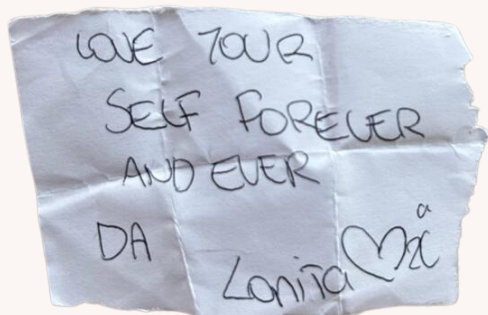 LOVE YOUR
SELF FOREVER
AND EVER
DA
Lonita